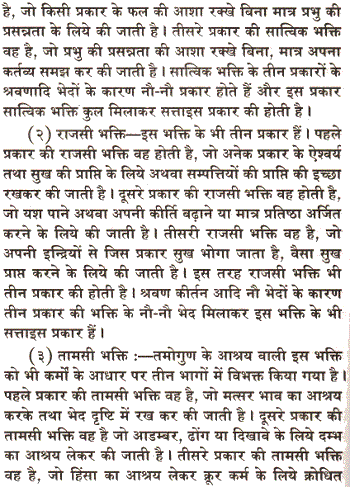 है, जो किसी प्रकार के फल की आशा रक्खे बिना मात्र प्रभु की
प्रसन्नता के लिये की जाती है । तीसरे प्रकार की सात्विक भक्ति
वह है, जो प्रभु की प्रसन्नता की आशा रक्खे विना, मात्र अपना
कर्तव्य समझ कर की जाती है । सात्विक भक्ति के तीन प्रकारों के
श्रवणादि भेदों के कारण नौ-नौ प्रकार होते हैं और इस प्रकार
सात्विक भक्ति कुल मिलाकर सत्ताइस प्रकार की होती है ।
(२) राजसी भक्ति—इस भक्ति के भी तीन प्रकार हैं । पहले
प्रकार की राजसी भक्ति वह होती है, जो अनेक प्रकार के ऐश्वर्य
तथा सुख की प्राप्ति के लिये अथवा सम्पत्तियों की प्राप्ति की इच्छा
रखकर की जाती है । दूसरे प्रकार की राजसी भक्ति वह होती है,
जो यश पाने अथवा अपनी कीर्ति बढ़ाने या मात्र प्रतिष्ठा अर्जित
करने के लिये की जाती है । तीसरी राजसी भक्ति वह है, जो
अपनी इन्द्रियों से जिस प्रकार सुख भोगा जाता है, वैसा सुख
प्राप्त करने के लिये की जाती है । इस तरह राजसी भक्ति भी
तीन प्रकार की होती है । श्रवण कीर्तन आदि नौ भेदों के कारण
तीन प्रकार की भक्ति के नौ-नौ भेद मिलाकर इस भक्ति के भी
सत्ताइस प्रकार हैं ।
(३) तामसी भक्ति :—तमोगुण के आश्रय वाली इस भक्ति
को भी कर्मों के आधार पर तीन भागों में विभक्त किया गया है ।
पहले प्रकार की तामसी भक्ति वह है, जो मत्सर भाव का आश्रय
करके तथा भेद दृष्टि में रख कर की जाती है । दूसरे प्रकार की
तामसी भक्ति वह है जो आडम्बर, ढोंग या दिखावे के लिये दम्भ
का आश्रय लेकर की जाती है । तीसरे प्रकार की तामसी भक्ति
वह है, जो हिंसा का आश्रय लेकर क्रूर कर्म के लिये क्रोधित